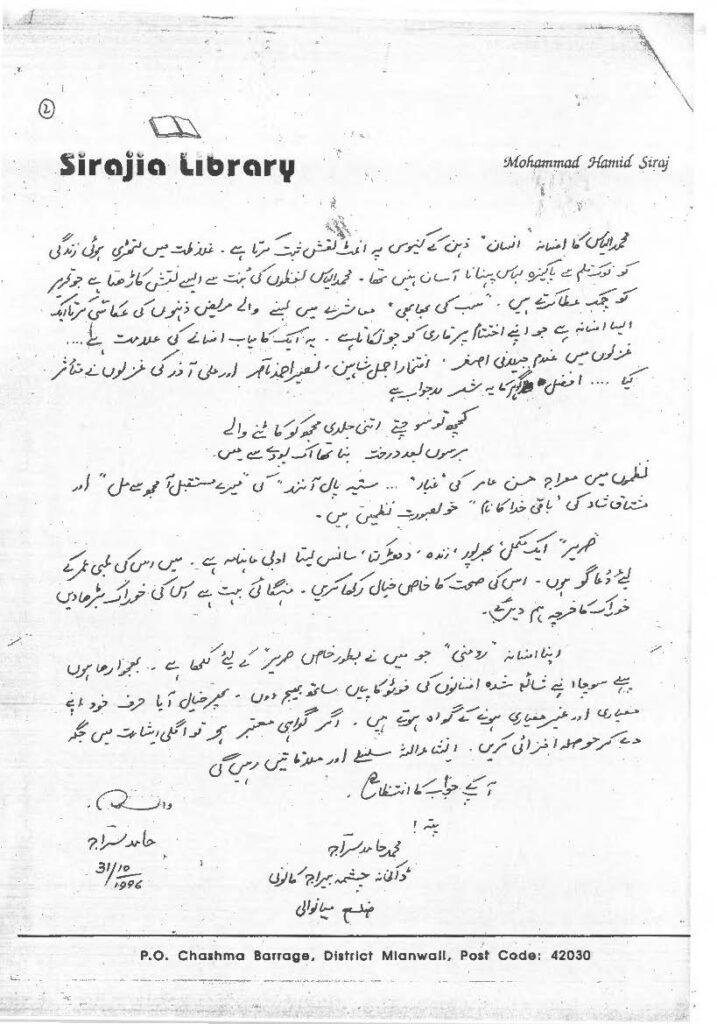 ②
Sirajia Library
Mohammad Hamid Siraj
محمد الیاس کا افسانہ "انسان" ذہن کے کینوس پہ انمٹ نقش ثبت کرتا ہے۔ غلاظت میں لتھڑی ہوئی زندگی
کو نوک قلم سے پاکیزہ لباس پہنانا آسان نہیں تھا۔ محمد الیاس لفظوں کی بُنت سے ایسے نقش کاڑھتا ہے جو تحریر
کو چمک عطا کرتے ہیں۔ "سب کی بھابھی" معاشرے میں بسنے والے مریض ذہنوں کی عکاسی کرتا ایک
ایسا افسانہ ہے جو اپنے اختتام پر قاری کو چونکاتا ہے۔ یہ ایک کامیاب افسانے کی علامت ہے ....
غزلوں میں اصغر، افتخار اجمل شاہین، نصیر احمد ناصر اور علی آذر کی غزلوں نے متاثر
کیا .... افضل گوہر کا یہ شعر لاجواب ہے
کچھ تو سوچتے اتنی جلدی مجھ کو کاٹنے والے
برسوں بعد درخت بنا تھا اک پودے سے میں۔
نظموں میں معراج حسن عامر کی "غبار" ... ستیہ پال آنند کی "میرے مستقبل آ مجھ سے مل" اور
مشتاق شاد کی "باقی خدا کا نام" خوبصورت نظمیں ہیں۔
"صریر" ایک مکمل، بھرپور، زندہ، دھڑکتا، سانس لیتا ادبی ماہنامہ ہے۔ میں اس کی لمبی عمر کے
لئے دُعا گو ہوں۔ اس کی صحت کا خاص خیال رکھا کریں۔ مہنگائی بہت ہے اس کی خوراک بڑھا دیں
خوراک کا خرچہ ہم دیں گے۔
اپنا افسانہ جو میں نے بطور خاص صریر کے لئے لکھا ہے۔ بھجوا رہا ہوں
پہلے سوچا اپنے شائع شدہ افسانوں کی فوٹو کاپیاں ساتھ بھیج دوں۔ پھر خیال آیا حرف خود اپنے
معیاری اور غیر معیاری ہونے کے گواہ ہوتے ہیں۔ اگر گواہی معتبر ہو تو اگلی اشاعت میں جگہ
دے کر حوصلہ افزائی کریں۔ انشاءاللہ سلسلے اور ملاقاتیں رہیں گی
آپکے جواب کا انتظار ہے۔
والسلام۔
حامد سراج
31/10
1996
پتہ!
محمد حامد سراج
ڈاکخانہ چشمہ بیراج کالونی
ضلع میانوالی
P.O. Chashma Barrage, District Mianwali, Post Code: 42030